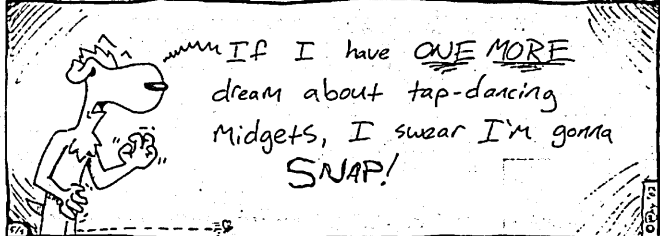 If I have ONE MORE
dream about tap-dancing
midgets, I swear I'm gonna
SNAP!